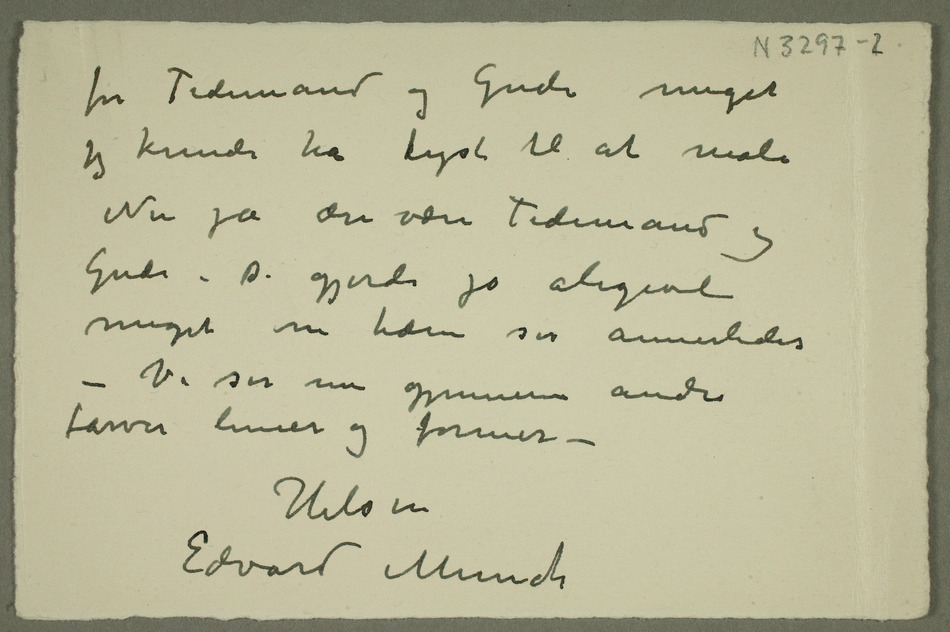 N 3297-2
for Tidemand og Gude meget
jeg kunde ha lyst til at male
Nu ja ære være Tidemand og
Gude. De gjorde jo alligevel
meget om tiden ser annerledes
– Vi ser nu gjennem andre
farver linier og former –
Hilsen
Edvard Munch